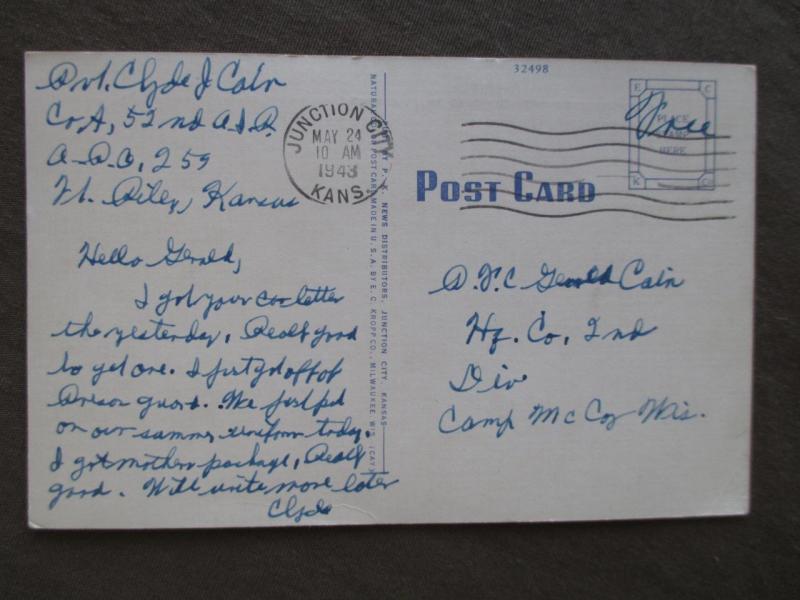 Pvt. Clyde J Cain
Co. A, 52nd A.I.B.
A.P.O. 259
Ft. Riley, Kansas
Hello Gerald,
I got your letter
the yesterday, Really good
to get one. I just got off of
Prison guard. We just put
on our summer uniform today.
I got mothers package, Really
good. Will write more later
Clyde
JUNCTION CITY
MAY 24
10 AM
1943
KANS.
NEWS DISTRIBUTORS, JUNCTION CITY, KANSAS
POST CARD MADE IN U.S.A. BY E. C. KROPP CO., MILWAUKEE, WIS.
32498
POST CARD
E C
K C
PLACE
CARD
HERE
Free
P.F.C Gerald Cain
Hq. Co. 2nd
Div
Camp McCoy Wis.